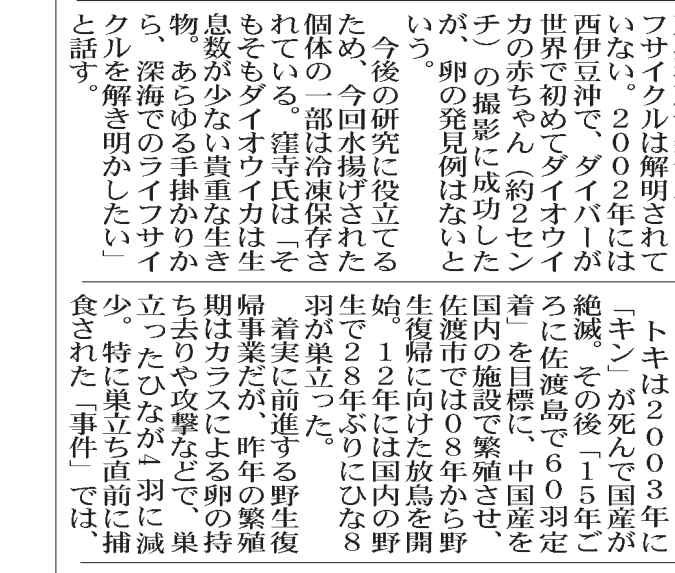 フサイクルは解明されて
いない。2002年には
西伊豆沖で、ダイバーが
世界で初めてダイオウイ
カの赤ちゃん（約2セン
チ）の撮影に成功した
が、卵の発見例はないと
いう。
今後の研究に役立てる
ため、今回水揚げされた
個体の一部は冷凍保存さ
れている。窪寺氏は「そ
もそもダイオウイカは生
息数が少ない貴重な生き
物。あらゆる手掛かりか
ら、深海でのライフサイ
クルを解き明かしたい」
と話す。
トキは2003年に
「キン」が死んで国産が
絶滅。その後「15年ご
ろに佐渡島で60羽定
着」を目標に、中国産を
国内の施設で繁殖させ、
佐渡市では08年から野
生復帰に向けた放鳥を開
始。12年には国内の野
生で28年ぶりにひな8
羽が巣立った。
着実に前進する野生復
帰事業だが、昨年の繁殖
期はカラスによる卵の持
ち去りや攻撃などで、巣
立ったひなが4羽に減
少。特に巣立ち直前に捕
食された「事件」では、